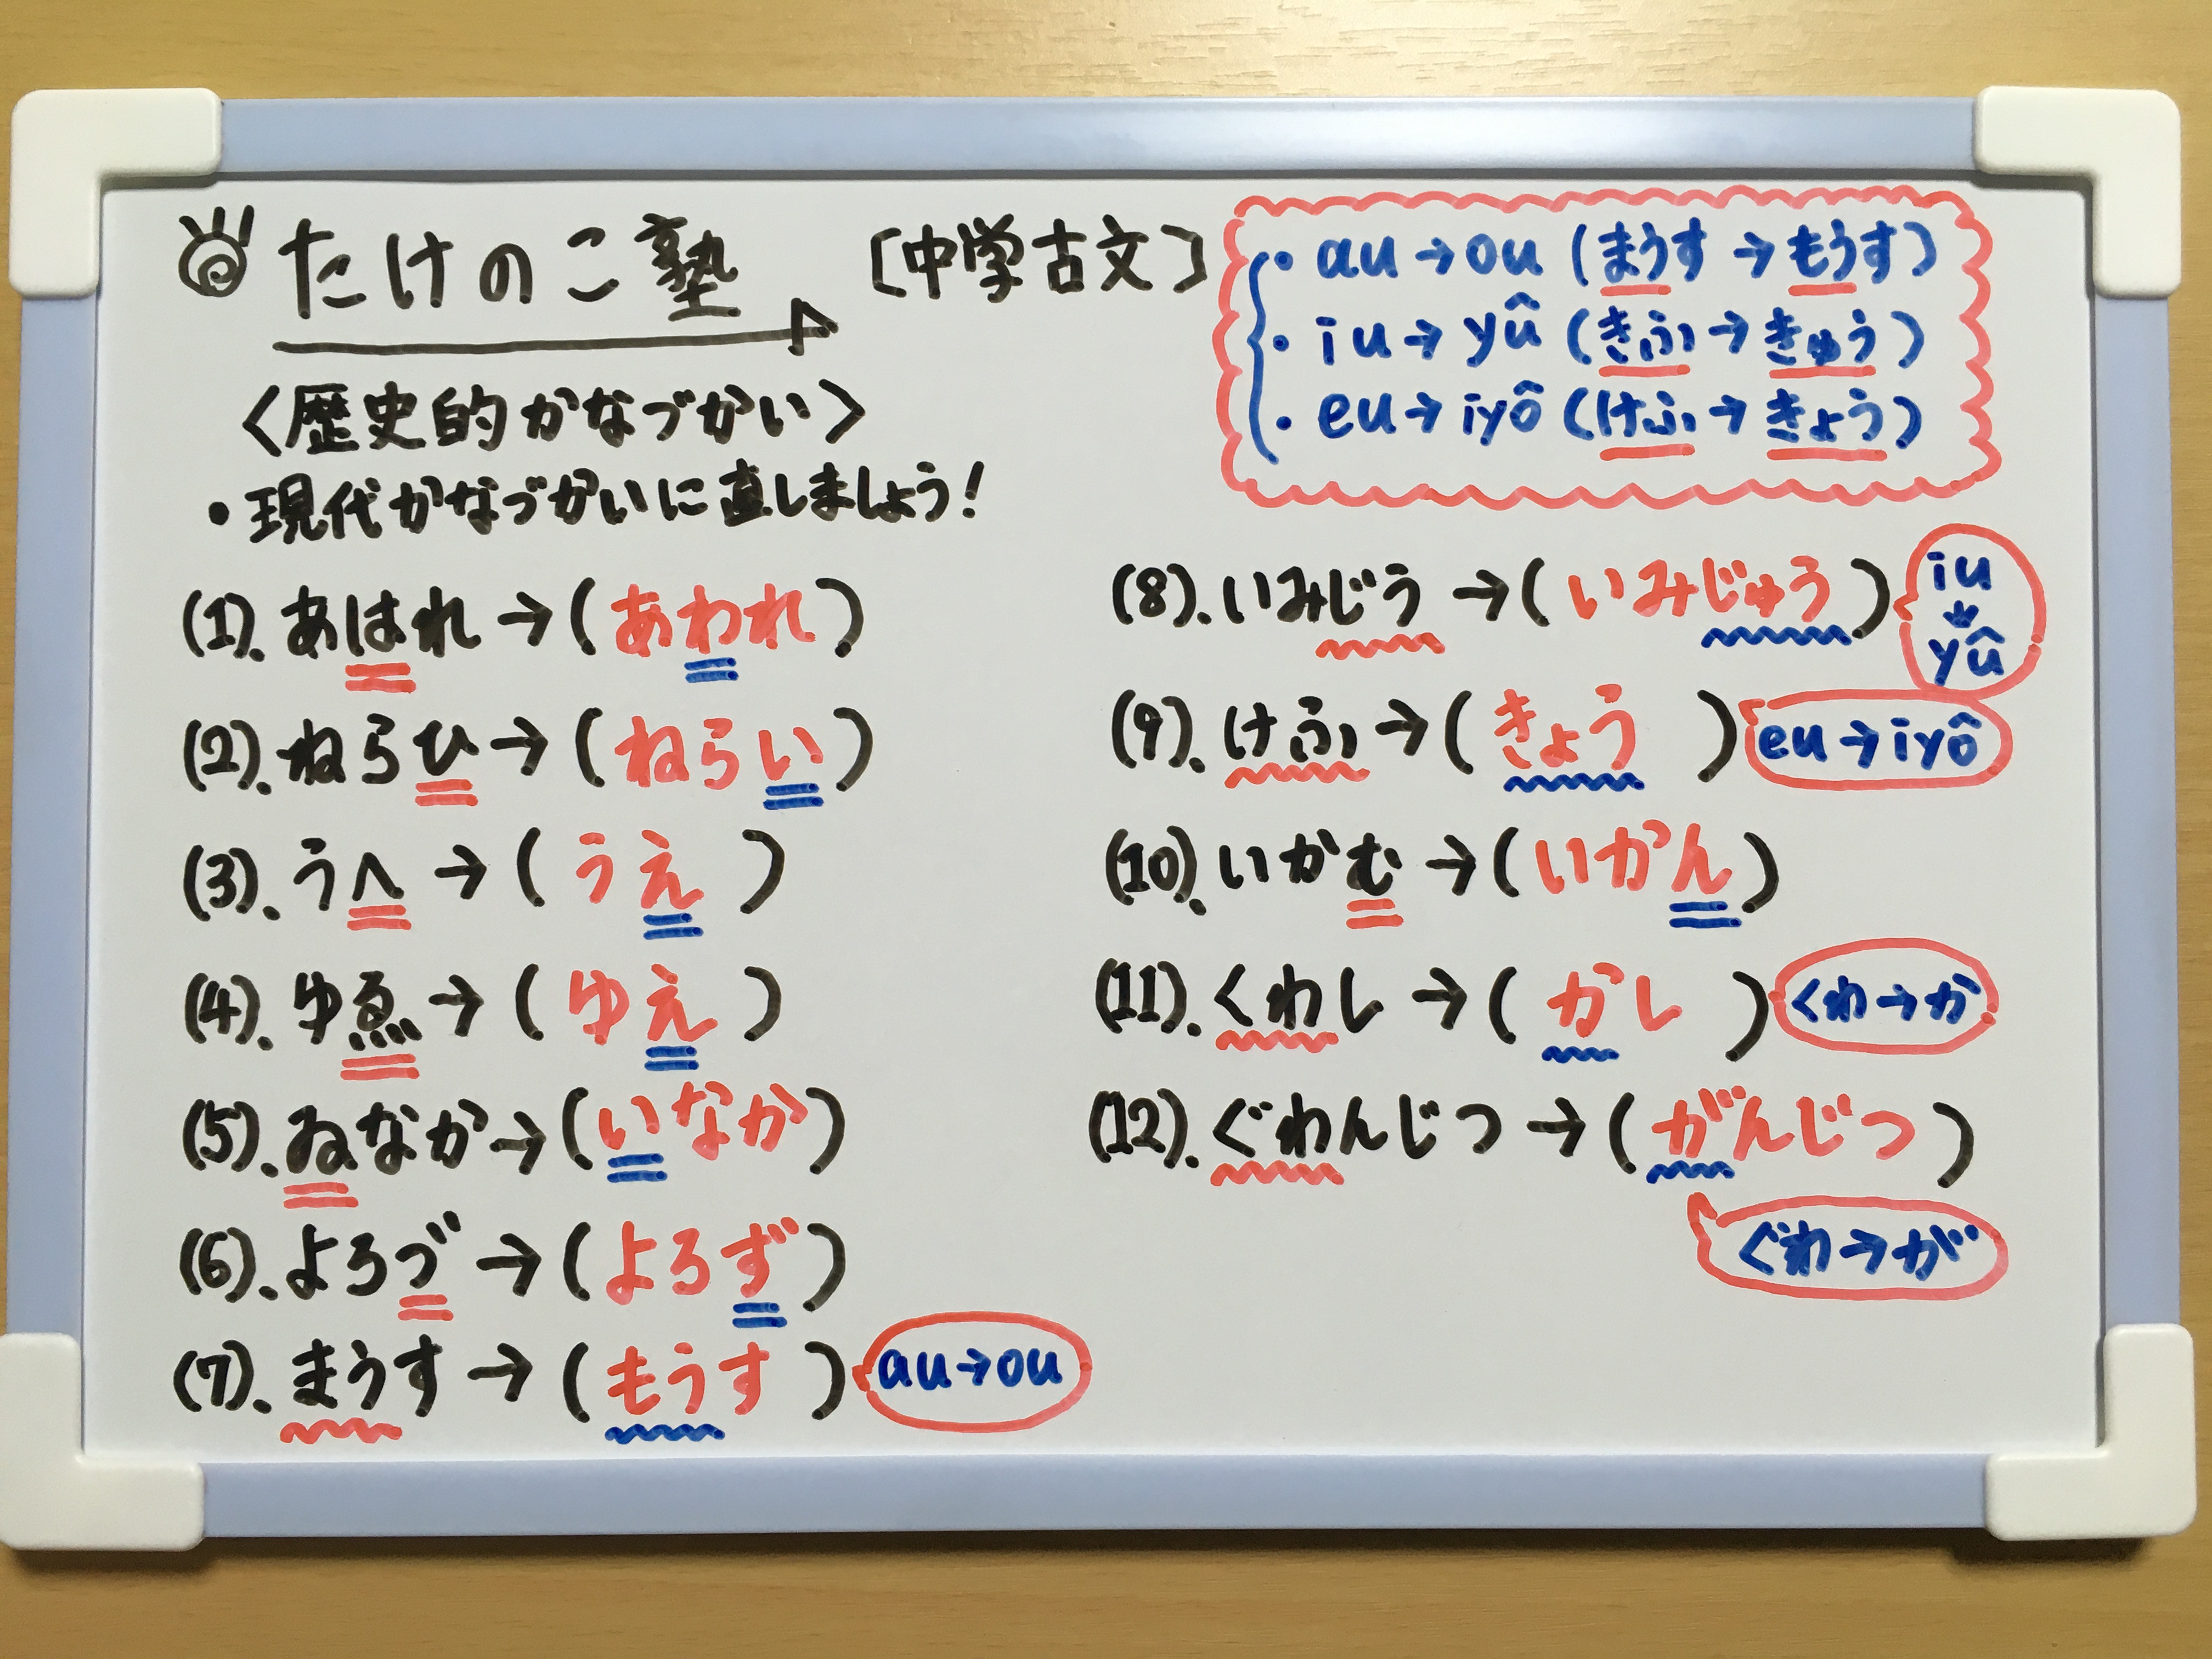 たけのこ塾 〔中学古文〕
・au→ou (まうす→もうす)
・iu→yû (きふ→きゅう)
・eu→iyô (けふ→きょう)
〈歴史的かなづかい〉
・現代かなづかいに直しましょう!
(1). あはれ→(あわれ)
(2). ねらひ→(ねらい)
(3). うへ→(うえ)
(4). ゆゑ→(ゆえ)
(5). ゐなか→(いなか)
(6). よろづ→(よろず)
(7). まうす→(もうす) au→ou
(8). いみじう→(いみじゅう) iu→yû
(9). けふ→(きょう) eu→iyô
(10). いかむ→(いかん)
(11). くわし→(かし) くわ→か
(12). ぐわんじつ→(がんじつ)
ぐわ→が